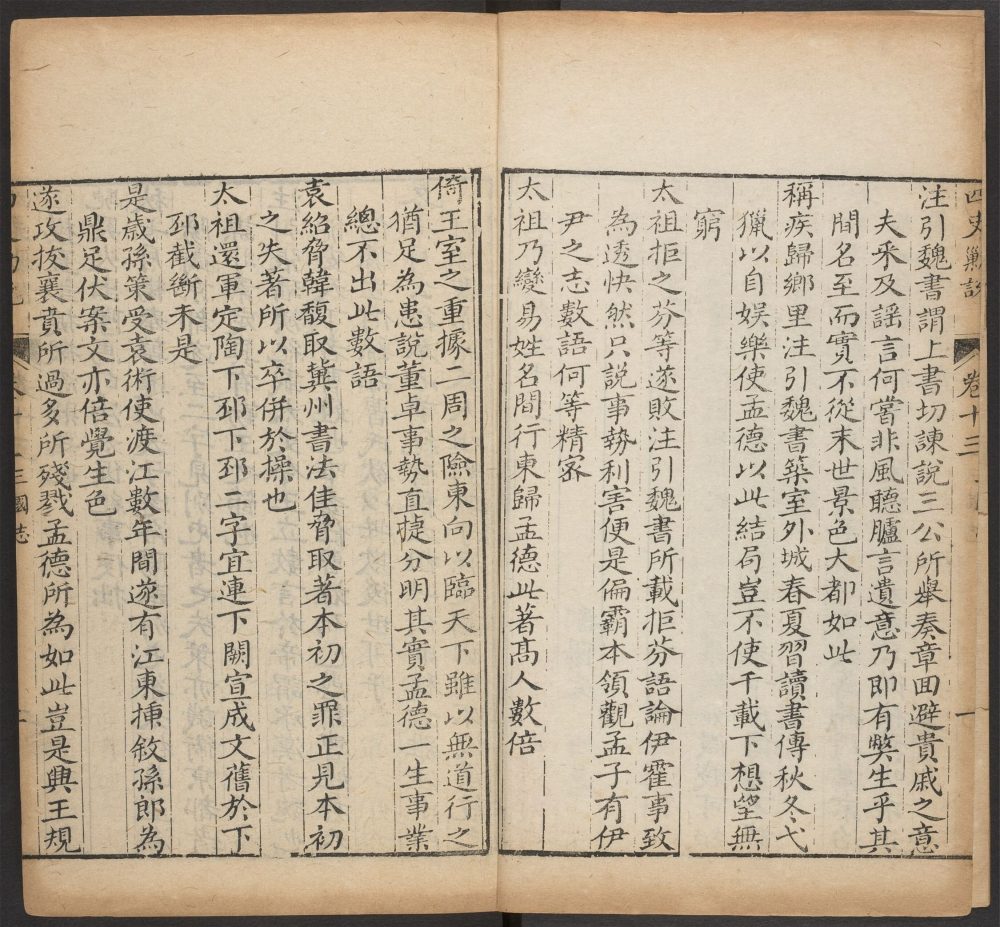 四史勦說 卷十三 一
注引魏書謂上書切諫說三公所舉奏章囬避貴戚之意
夫采及謡言何嘗非風聽臚言遺意乃即有弊生乎其
間名至而實不從末世景色大都如此
稱疾歸鄉里注引魏書築室外城春夏習讀書傳秋冬弋
獵以自娛樂使孟德以此結局豈不使千載下想望無
窮
太祖拒之芬等遂敗注引魏書所載拒芬語論伊霍事致
為透快然只說事勢利害便是偏霸本領觀孟子有伊
尹之志數語何等精密
太祖乃變易姓名間行東歸孟德此著髙人數倍
倚王室之重據二周之險東向以臨天下雖以無道行之
猶足為患說董卓事勢直捷分明其實孟德一生事業
總不出此數語
袁紹脅韓馥取冀州書法佳脅取著本初之罪正見本初
之失著所以卒併於操也
太祖還軍定陶下邳下邳二字宜連下闕宣成文舊於下
邳截斷未是
是歲孫策受袁術使渡江數年間遂有江東揷敘孫郎為
鼎足伏案文亦倍覺生色
遂攻拔襄賁所過多所殘戮孟德所為如此豈是興王規
三國志